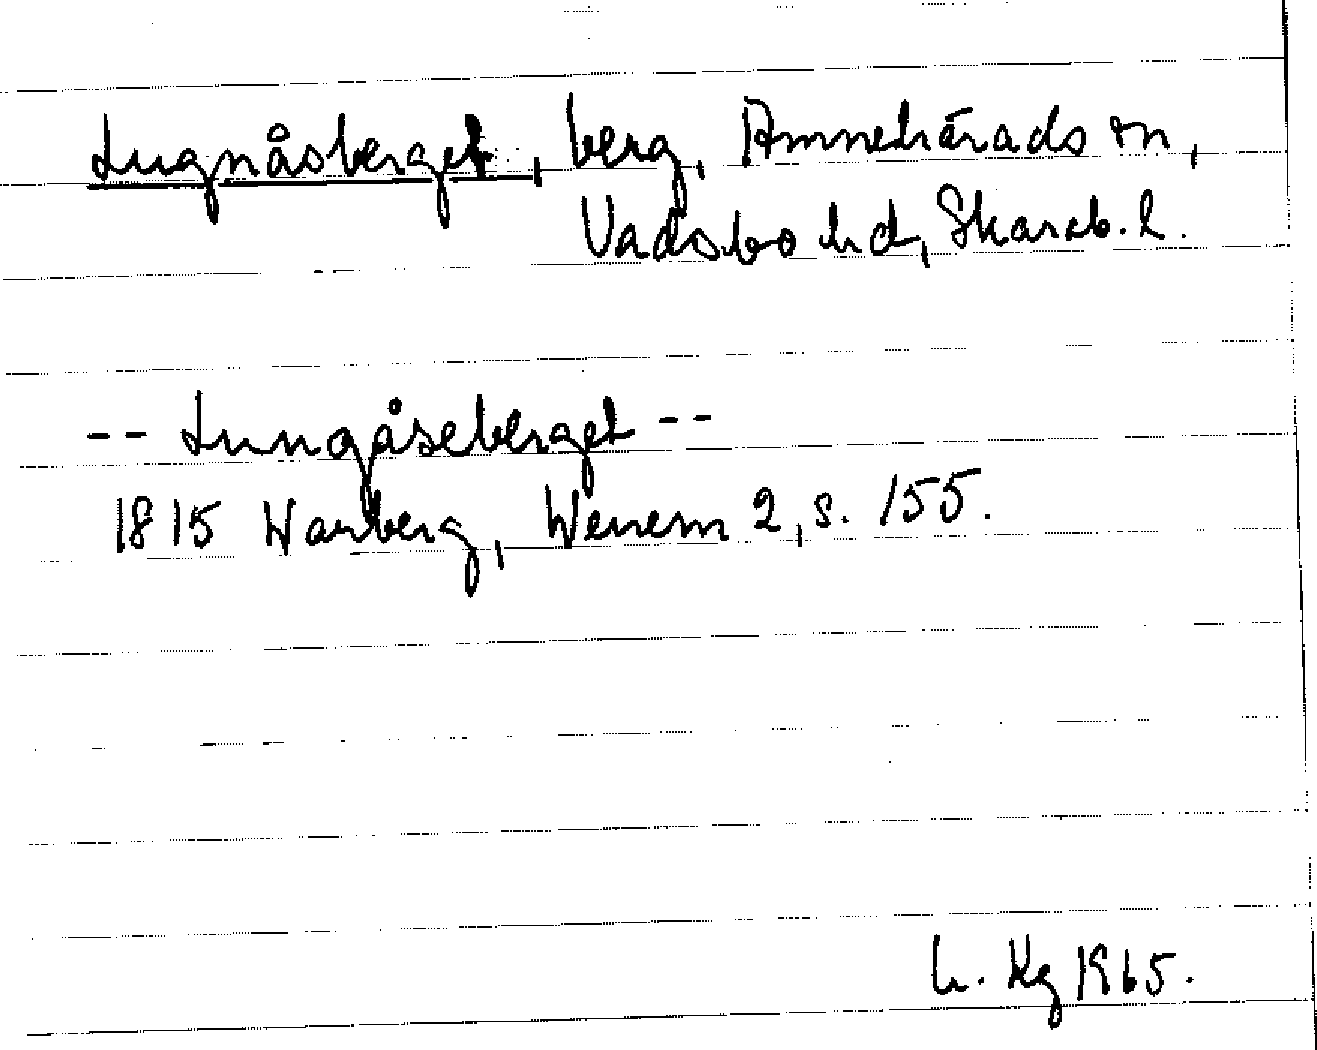 Lugnåsberget, berg, Amnehärads sn,
Vadsbo hd, Skarab. l.
-- Lungåseberget --
1815 Warberg, Wenern 2, s. 155.
L. Kg 1965.